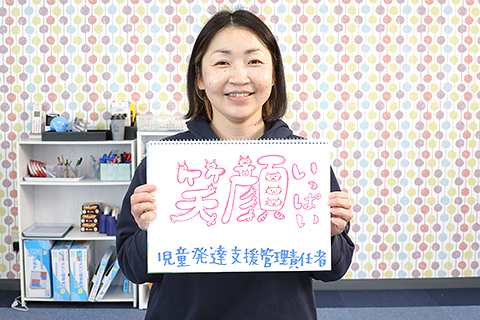 笑顔いっぱい
児童発達支援管理責任者